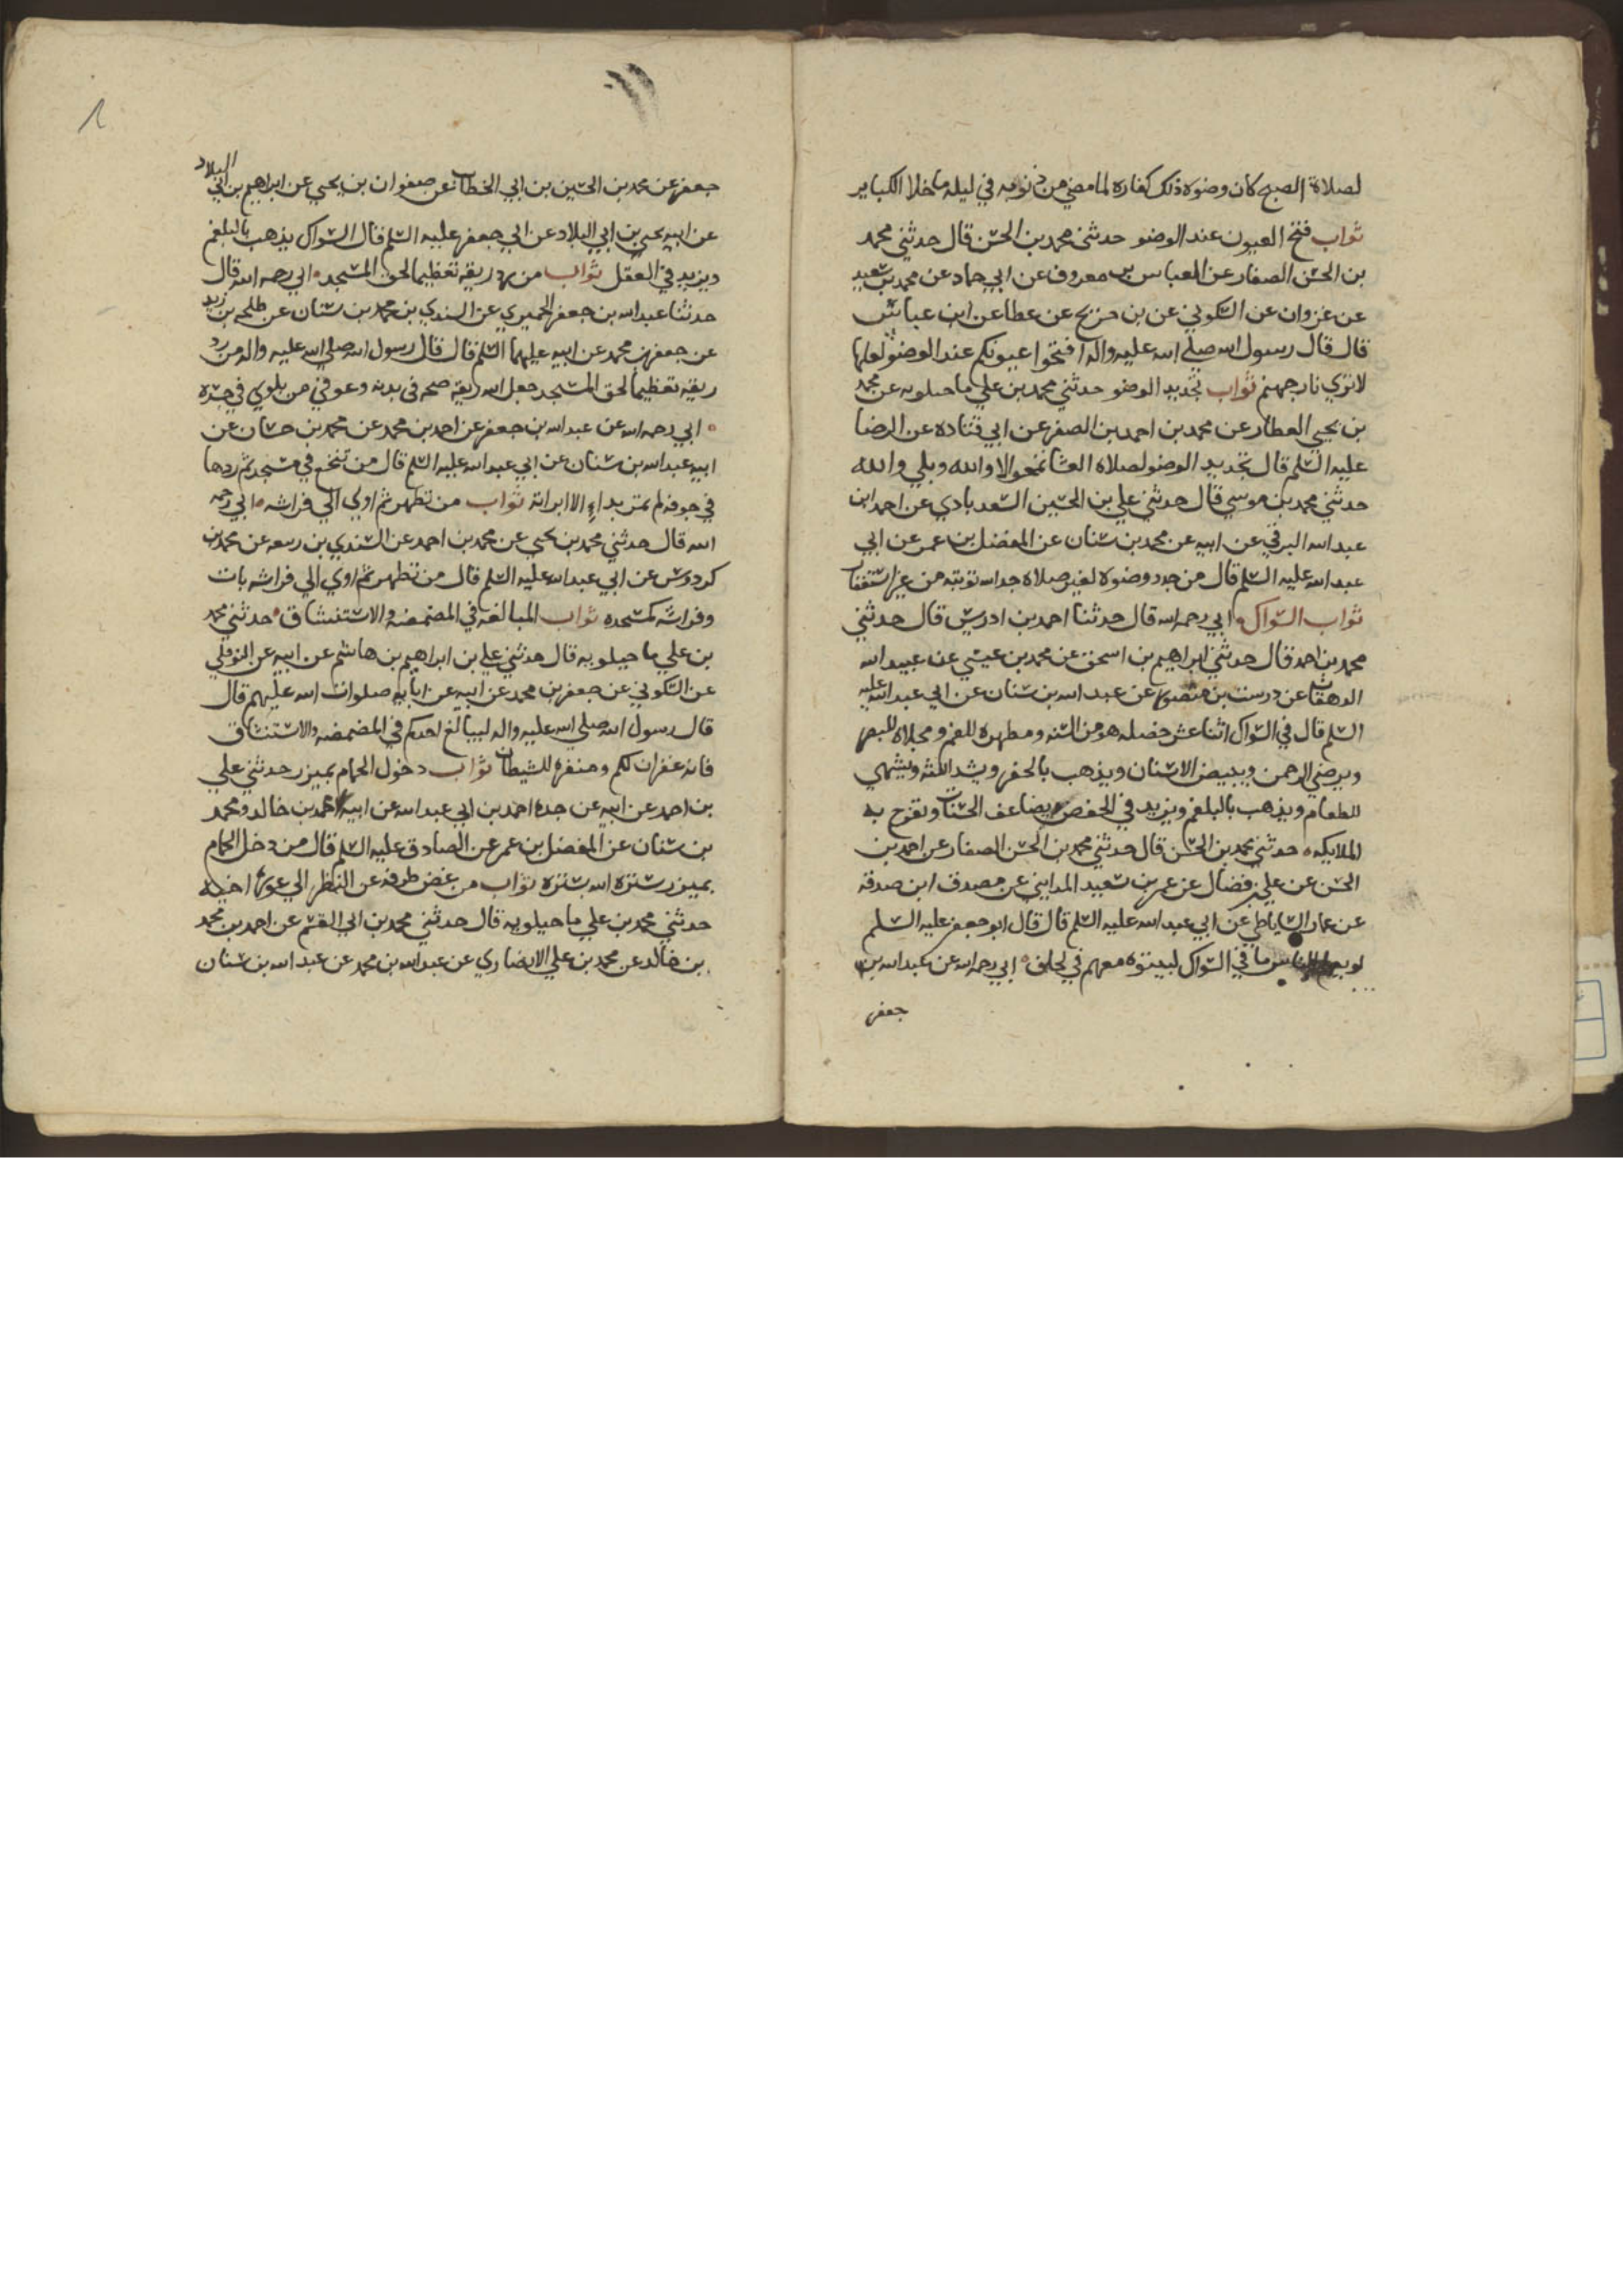 لصلاة الصبح كان وضوه ذلك كفاره لما مضي من ذنوبه في ليله ما خلا الكباير
ثواب فتح العيون عند الوضو حدثني محمد بن الحسن قال حدثني محمد
بن الحسن الصفار عن العباس بن معروف عن ابي حماد عن محمد بن سعيد
عن غزوان عن السكوني عن بن جريح عن عطا عن ابن عباس
قال قال رسول الله صلي الله عليه واله افتحوا عيونكم عند الوضو لعلها
لا تري نار جهنم ثواب تجديد الوضو حدثني محمد بن علي ماجيلويه عن محمد
بن يحيي العطار عن محمد بن احمد بن الصفر عن ابي قتاده عن الرضا
عليه السلم قال تجديد الوضو لصلاه العشا تمحو لا والله وبلي والله
حدثني محمد بن موسي قال حدثني علي بن الحسين السعدبادي عن احمد ابن
عبد الله البرقي عن ابيه عن محمد بن سنان عن المفضل بن عمر عن ابي
عبد الله عليه السلم قال من جدد وضوه لغير صلاه جدد الله توبته من غير استغفار
ثواب السواك ابي رحمه الله قال حدثنا احمد بن ادريس قال حدثني
محمد بن احمد قال حدثني ابراهيم بن اسحق عن محمد بن عيسي عن عبيد الله
الدهقان عن درست بن منصور عن عبد الله بن سنان عن ابي عبد الله عليه
السلم قال في السواك اثنا عشر خصله هو من السنه ومطهره للفم ومجلاه للبصر
ويرضي الرحمن ويبيض الاسنان ويذهب بالحفر ويشد اللثه ويشهي
للطعام ويذهب بالبلغم ويزيد في الحفض ويضاعف الحسنات وتفرح به
الملايكه حدثني محمد بن الحسن قال حدثني محمد بن الحسن الصفار عن احمد بن
الحسن عن علي بن فضال عن عمر بن سعيد المدايني عن مصدق ابن صدقه
عن عمار الساباطي عن ابي عبد الله عليه السلم قال قال ابو جعفر عليه السلم
لو يعلم الناس ما في السواك لبيتوه معهم في لحاف ابي رحمه الله عن عبد الله بن
جعفر
جعفر عن محمد بن الحسين بن ابي الخطاب عن صفوان بن يحيي عن ابراهيم بن ابي البلاد
عن ابيه يحيي بن ابي البلاد عن ابي جعفر عليه السلم قال السواك يذهب بالبلغم
ويزيد في العقل ثواب من رد ريقه تعظيما لحق المسجد ابي رحمه الله قال
حدثنا عبد الله بن جعفر الحميري عن السندي بن محمد بن سنان عن طلحه بن زيد
عن جعفر بن محمد عن ابيه عليهما السلم قال قال رسول الله صلي الله عليه واله من رد
ريقه تعظيما لحق المسجد جعل الله ريقه صحه في بدنه وعوفي من بلوي في جسده
ابي رحمه الله عن عبد الله بن جعفر عن احمد بن محمد عن محمد بن حسان عن
ابيه عبد الله بن سنان عن ابي عبد الله عليه السلم قال من تنخع في مسجد ثم ردها
في جوفه لم تمر بداء الا ابراته ثواب من تطهر ثم اوي الي فراشه ابي رحمه
الله قال حدثني محمد بن يحيي عن محمد بن احمد عن السندي بن ربيعه عن محمد بن
كردوس عن ابي عبد الله عليه السلم قال من تطهر ثم اوي الي فراشه بات
وفراشه كمسجده ثواب المبالغه في المضمضه والاستنشاق حدثني محمد
بن علي ماجيلويه قال حدثني علي بن ابراهيم بن هاشم عن ابيه عن النوفلي
عن السكوني عن جعفر بن محمد عن ابيه عن ابايه صلوات الله عليهم قال
قال رسول الله صلي الله عليه واله ليبالغ احدكم في المضمضه والاستنشاق
فانه غفران لكم ومنفره للشيطان ثواب دخول الحمام بميزر حدثني علي
بن احمد عن ابيه عن جده احمد بن ابي عبد الله عن ابيه محمد بن خالد ومحمد
بن سنان عن المفضل بن عمر عن الصادق عليه السلم قال من دخل الحمام
بميزر ستره الله بستره ثواب من غض طرفه عن النظر الي عوره اخيه
حدثني محمد بن علي ماجيلويه قال حدثني محمد بن ابي القسم عن احمد بن محمد
بن خالد عن محمد بن علي الانصاري عن عبد الله بن محمد عن عبد الله بن سنان